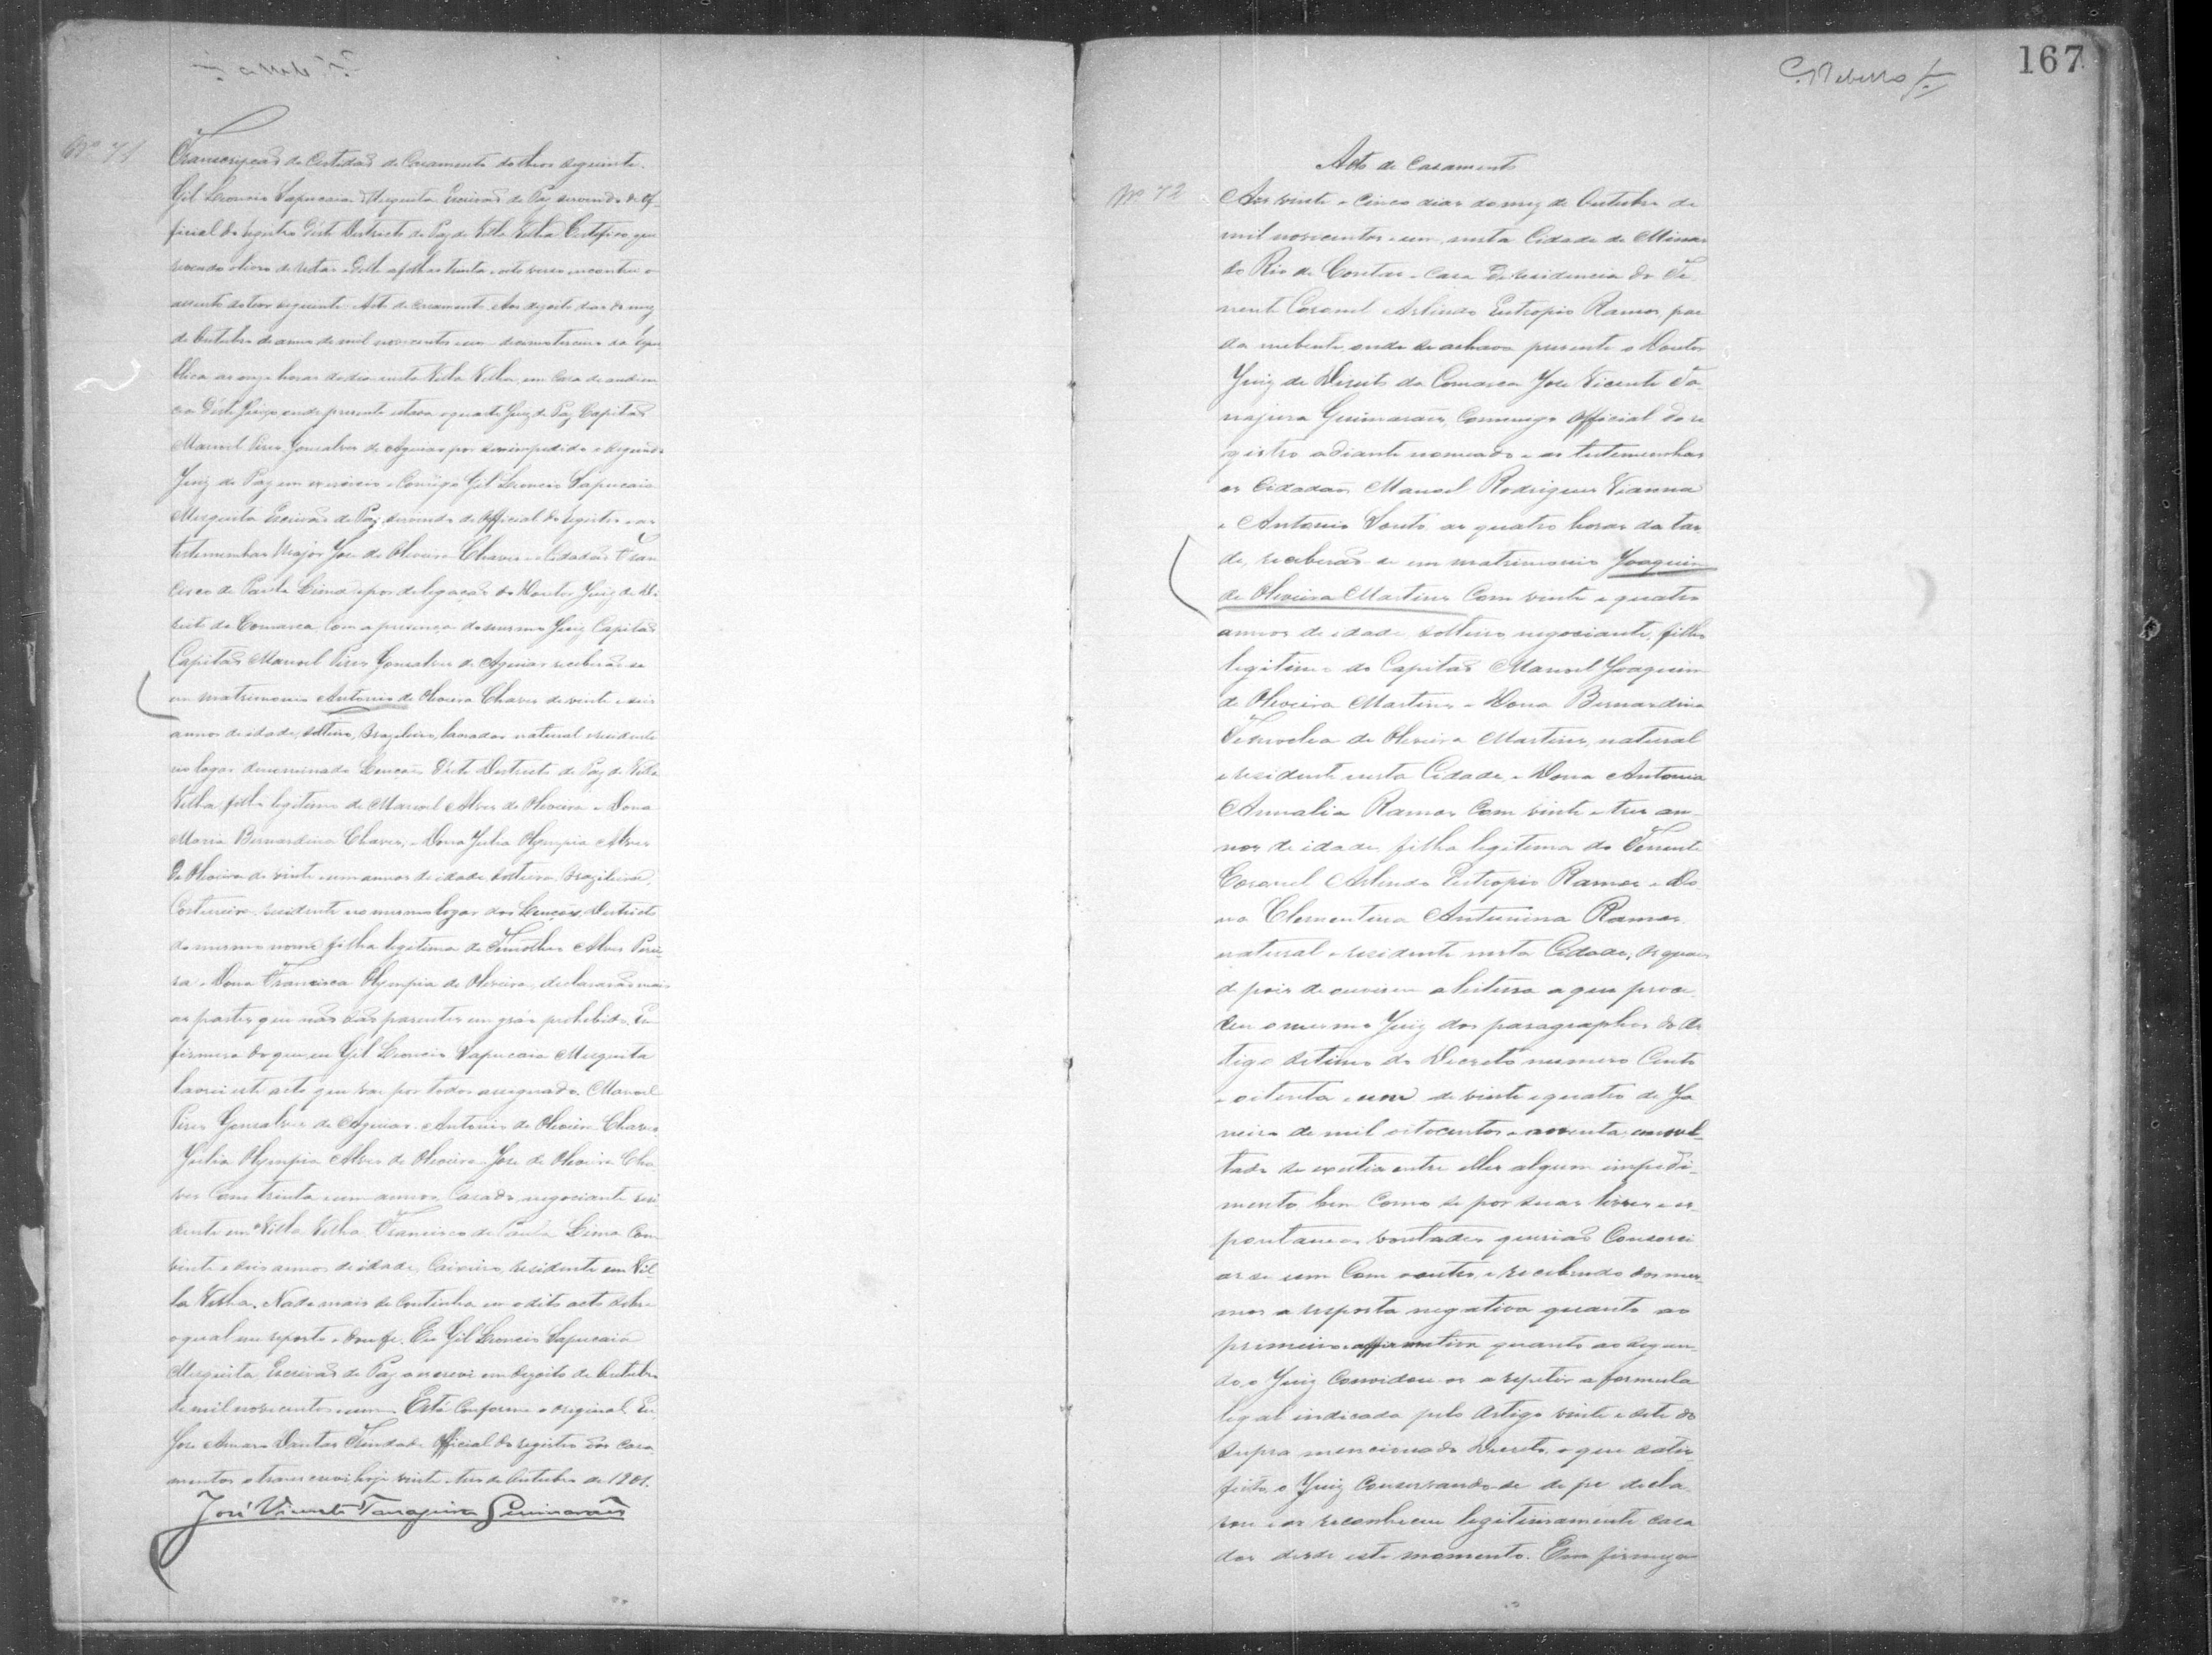 Nº 71
Transcripção da Certidão de Casamento do theor seguinte.
Gil Leoncio Sapucaia Mesquita Escrivão de Paz servindo de Of-
ficial do registro d'este Destricto de Paz de Villa Velha Certifico que
revendo o livro de notas d'elle a folhas trinta e oito verso encontrei o
assento do teor seguinte. Acto de casamento. Aos dezoito dias do mez
de Outubro do anno de mil novecentos e um decimo terceiro da Repu
blica as onze horas do dia nesta Villa Velha, em Casa de audien
cia d'este Juizo, onde presente estava o quarto Juiz de Paz Capitão
Manoel Pires Gonsalves de Aguiar por ser impedido o segundo
Juiz de Paz em exercicio e Comigo Gil Leoncio Sapucaia
Mesquita Escrivão de Paz, servindo de Official do Registro e as
testemunhas Major José de Oliveira Chaves e Cidadão Fran
cisco de Paula Lima e por delegação do Doutor Juiz de Di
reito da Comarca, Com a presença do mesmo Juiz Capitão
Capitão Manoel Pires Gonsalves de Aguiar receberão-se
em matrimonio Antonio de Oliveira Chaves de vinte e seis
annos de idade, solteiro, Brazileiro, lavrador natural e residente
no logar denominado Lençois d'este Destricto de Paz de Villa
Velha, filho legitimo de Manoel Alves de Oliveira e Dona
Maria Bernardina Chaves, e Dona Julia Olympia Alves
de Oliveira de vinte e um annos de idade, solteira, Brazileira,
Costureira, residente no mesmo logar dos Lençois, Destricto
do mesmo nome, filha legitima de Timotheo Alves Perei
ra e Dona Francisca Olympia de Oliveira, declararão mais
as partes que não são parentes em gráo prohibido. Em
firmesa do que, eu Gil Leoncio Sapucaia Mesquita
lavrei este acto que vae por todos assignado. Manoel
Pires Gonsalves de Aguiar. Antonio de Oliveira Chaves.
Julia Olympia Alves de Oliveira. José de Oliveira Cha
ves Com trinta e um annos, Casado, negociante resi
dente em Villa Velha. Francisco de Paula Lima Com
vinte e dois annos de idade, Caixeiro, residente em Vil
la Velha. Nada mais se Continha em o dito acto sobre
o qual me reporto e dou fé. Eu Gil Leoncio Sapucaia
Mesquita, Escrivão de Paz o escrevi em dezoito de Outubro
de mil novecentos e um. Está Conforme o original. Eu
José Amaro Dantas Official do registro dos Casa
mentos o transcrevi hoje vinte e tres de Outubro de 1901.
José Vicente Tanajura Guimarães
167
Nº 72
Acto de Casamento
Aos vinte e Cinco dias do mez de Outubro de
mil novecentos e um, nesta Cidade de Minas
do Rio de Contas e Casa de residencia do Te
nente Coronel Arlindo Eutropio Ramos, pae
da nubente, onde se achava presente o Doutor
Juiz de Direito da Comarca José Vicente Ta
najura Guimarães, Commigo Official do re
gistro adiante nomeado e as testemunhas
os Cidadãos Manoel Rodrigues Vianna
e Antonio Souto, as quatro horas da tar
de, receberão-se em matrimonio Joaquim
de Oliveira Martins Com vinte e quatro
annos de idade, solteiro, negociante, filho
legitimo do Capitão Manoel Joaquim
de Oliveira Martins e Dona Bernardina
de Oliveira Martins, natural
e residente nesta Cidade, e Dona Antonia
Ramos Com vinte e tres an-
nos de idade, filha legitima do Tenente
Coronel Arlindo Eutropio Ramos e Do
na Clementina Antunina Ramos
natural e residente nesta Cidade, os quaes
depois de ouvirem a leitura a que proce
deu o mesmo Juiz dos paragraphos do ar
tigo setimo do Decreto numero Cento
e oitenta e um de vinte e quatro de Ja
neiro de mil oitocentos e noventa, consul-
tados se existia entre elles algum impedi-
mento, bem Como se por suas livres e es-
pontaneas vontades querião Consorci
ar-se um Com o outro, e recebendo dos mes-
mos a resposta negativa quanto ao
primeiro e affirmativa quanto ao segun-
do, o Juiz Convidou-os a repetir a formula
legal indicada pelo Artigo vinte e sete do
supra mencionado Decreto, o que satis
feito, o Juiz Conservando-se de pé decla
rou e os reconheceu legitimamente casa
dos desde este momento. Em firmeza